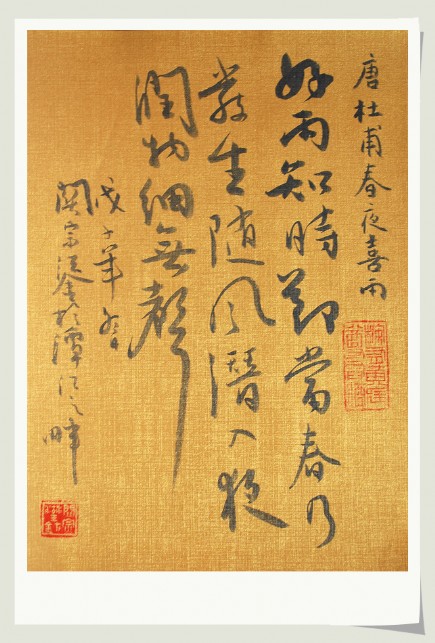 唐杜甫春夜喜雨
好雨知時節當春乃
發生隨風潛入夜
潤物細無聲
戊子年
宗於潭江之畔